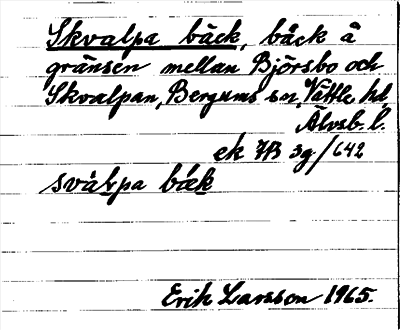 Skvalpa bäck, bäck å
gränsen mellan Björsbo och
Skvalpan, Bergums sn, Vättle hd,
Älvsb. l.
ek 7B 3g/642
svàlpa bák
Erik Larsson 1965.